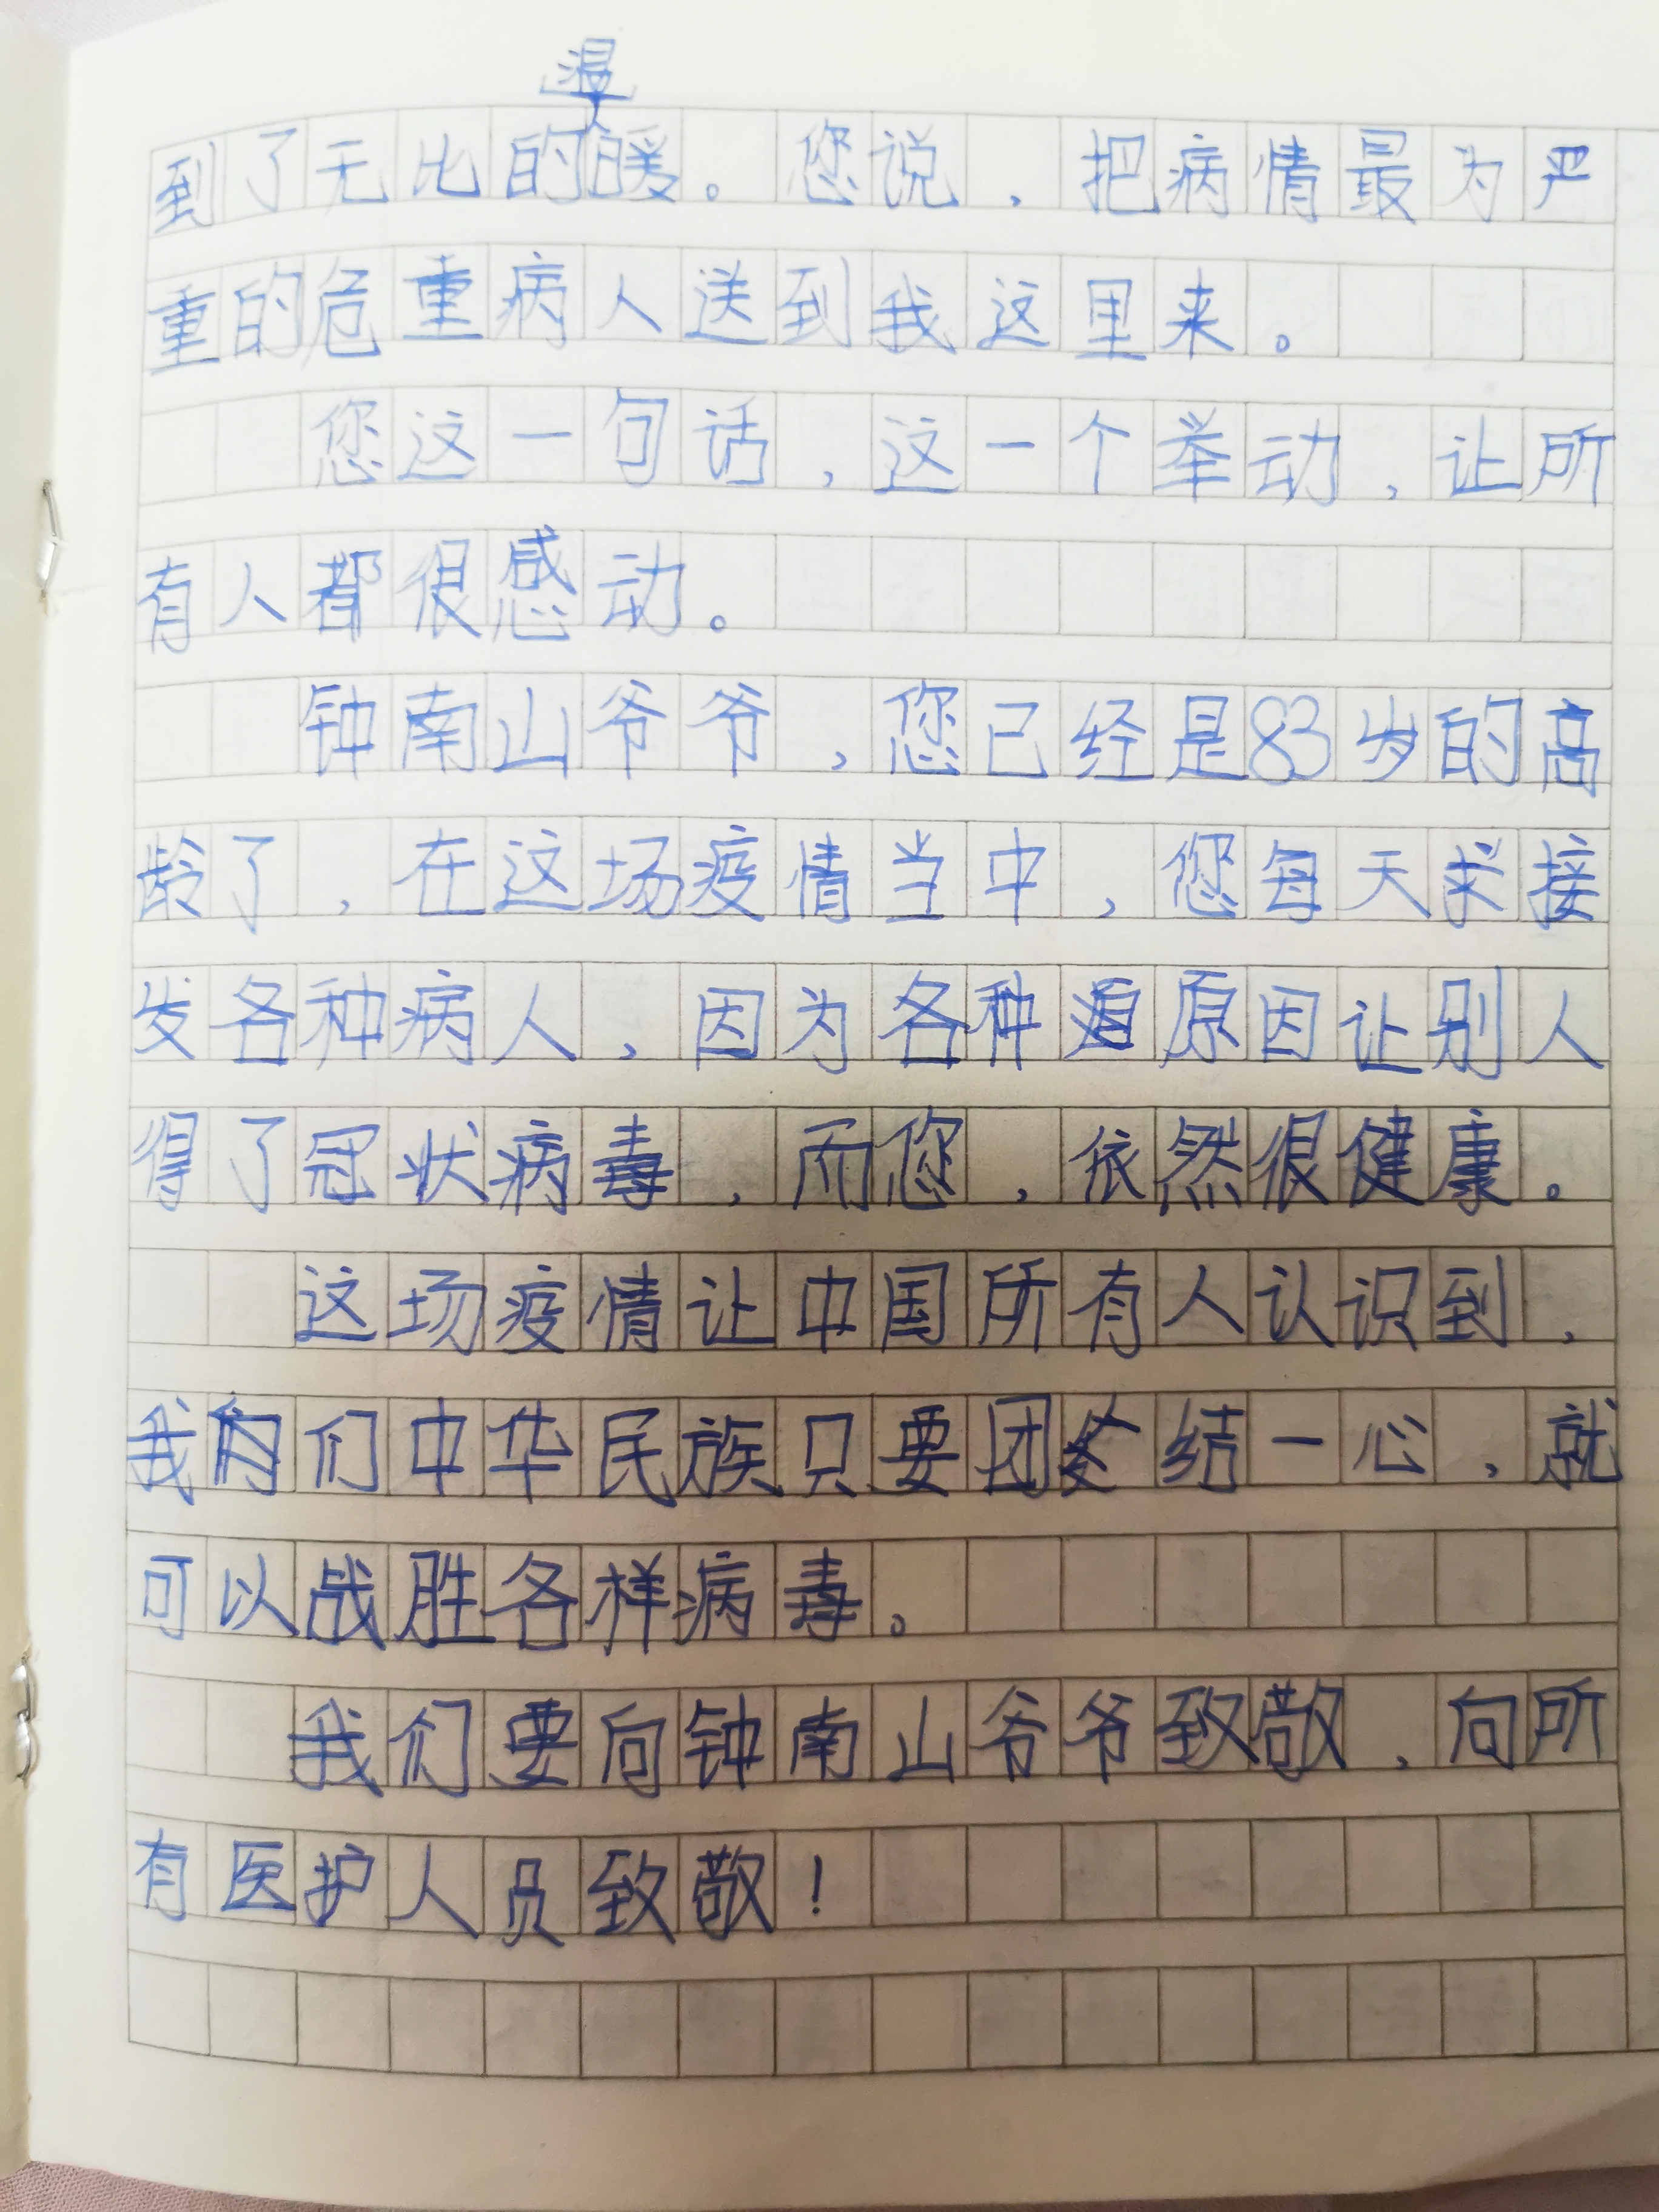 到了无比的温暖。您说，把病情最为严
重的危重病人送到我这里来。
您这一句话，这一个举动，让所
有人都很感动。
钟南山爷爷，您已经是83岁的高
龄了，在这场疫情当中，您每天求接
发各种病人，因为各种原因让别人
得了冠状病毒，而您，依然很健康。
这场疫情让中国所有人认识到，
我们中华民族只要团结一心，就
可以战胜各样病毒。
我们要向钟南山爷爷致敬，向所
有医护人员致敬！